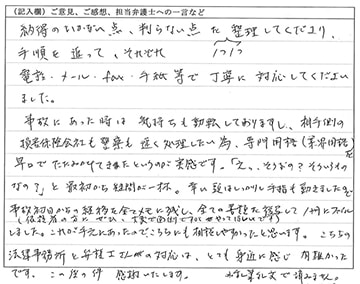 (記入欄)ご意見、ご感想、担当弁護士への一言など
納得のいかない点、判らない点を整理してくださり、
手順を追って、それぞれ 1つ1つ
電話・メール・fax・手紙等で丁寧に対応してください
ました。
事故にあった時は気持ちも動転しておりますし、相手側の
損害保険会社も警察も速く処理したい為、専門用語(業界用語)を
早口でたたみかけてきたというのが実感です。「えっ、そうなの?そういうもの
なの?」と最初から疑問が一杯。幸い頭はしっかりし手指も動きましたので
事故初日からの経緯を全てメモに残し、全ての書類を複写して1冊にファイル
しました。これが手元にあったのでこちらにも相談しやすかったと思います。こちらの
法律事務所と弁護士さんの対応は、とても身近に感じ有難かった
です。この度の件 感謝いたします。 乱筆乱文で済みません。